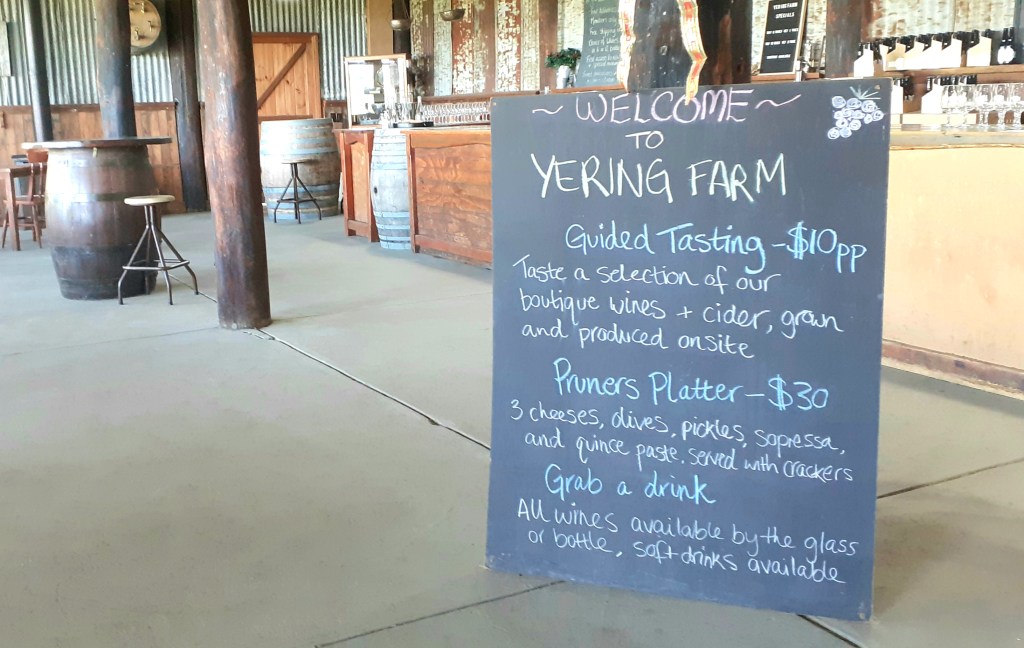 ~ WELCOME ~
TO
YERING FARM
Guided Tasting - $10pp
Taste a selection of our
boutique wines + cider, grown
and produced onsite
Pruners Platter - $30
3 cheeses, olives, pickles, sopressa,
and quince paste. served with crackers
Grab a drink
All wines available by the glass
or bottle, soft drinks available
YERING FARM
SPECIALS